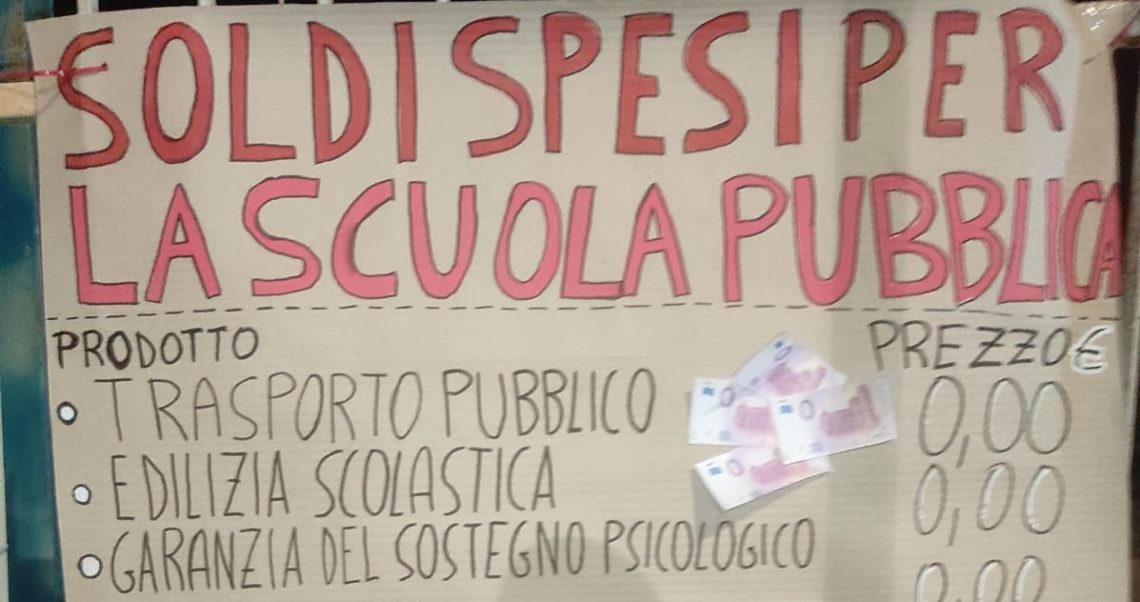 SOLDI SPESI PER
LA SCUOLA PUBBLICA
PRODOTTO PREZZO €
TRASPORTO PUBBLICO 0,00
EDILIZIA SCOLASTICA 0,00
GARANZIA DEL SOSTEGNO PSICOLOGICO 0,00
0
0
0
0